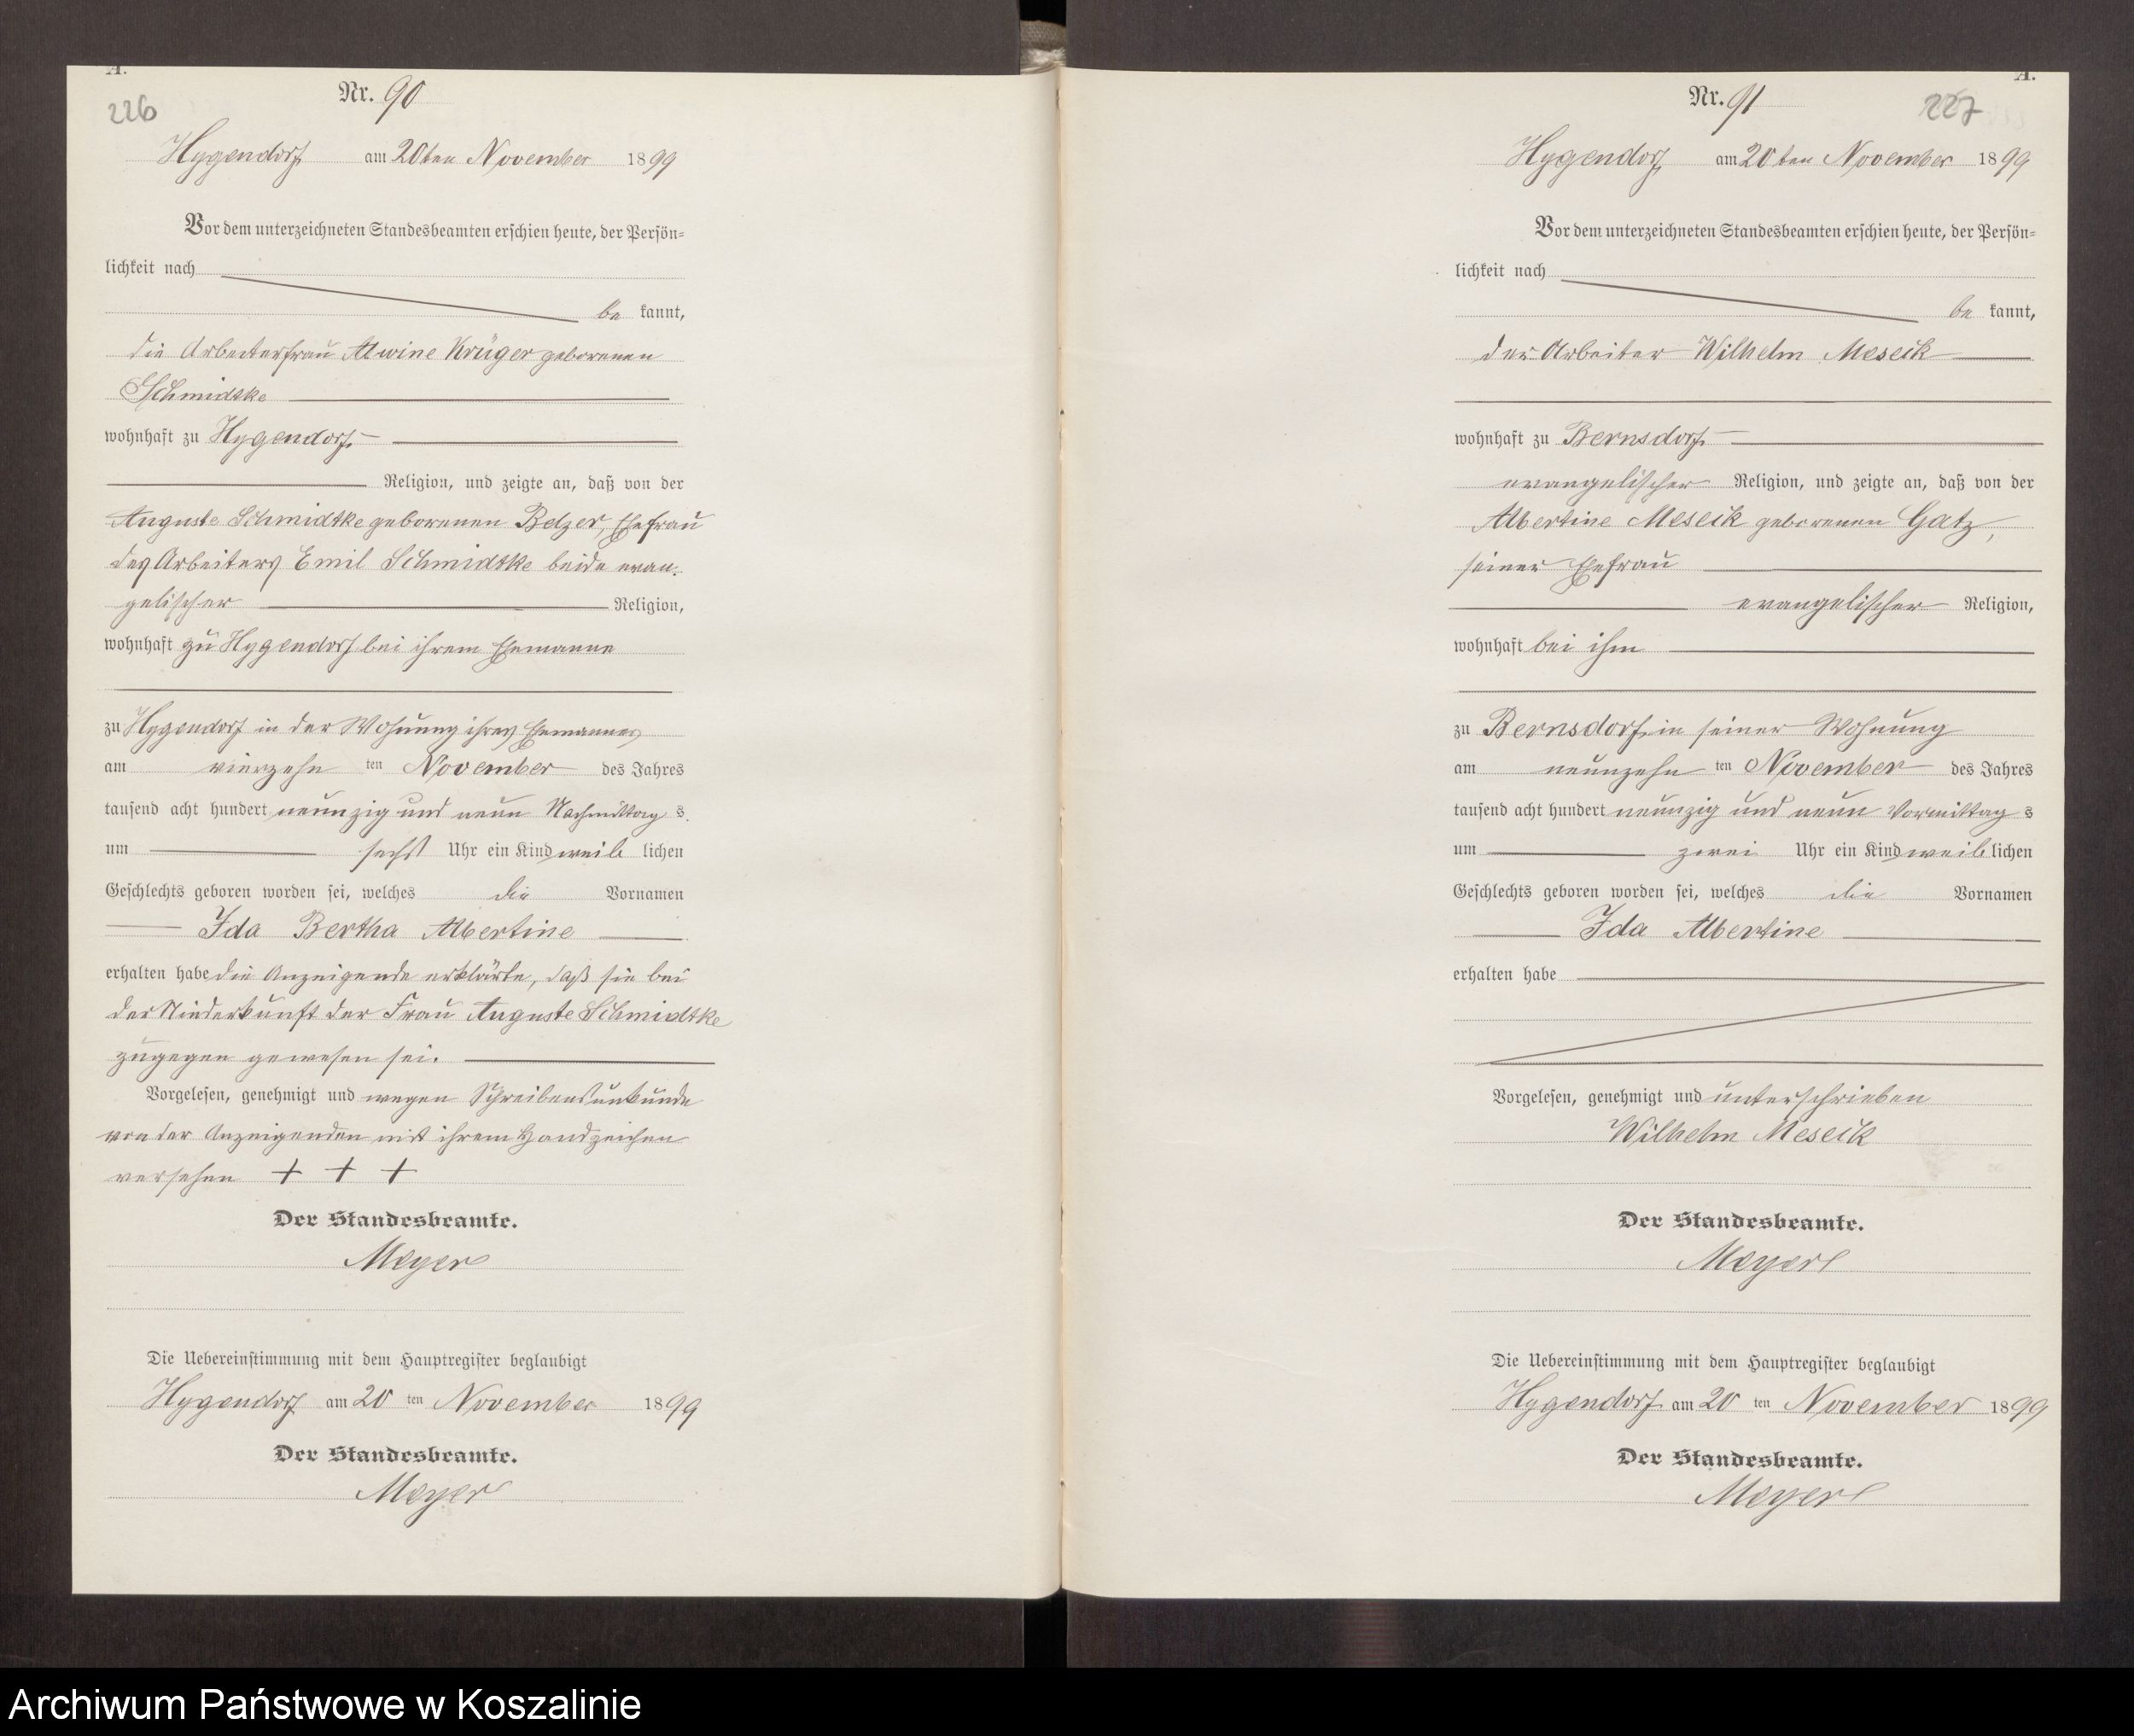 A.
226
Nr. 90
Hygendorf am 20ten November 1899
Vor dem unterzeichneten Standesbeamten erschien heute, der Persön-
lichkeit nach
be kannt,
die Arbeiterfrau Alwine Krüger geborenen
Schmidtke
wohnhaft zu Hygendorf
Religion, und zeigte an, daß von der
Auguste Schmidtke geborenen Belzer, Ehefrau
des Arbeiters Emil Schmidtke beide evan-
gelischer Religion,
wohnhaft zu Hygendorf bei ihrem Ehemanne
zu Hygendorf in der Wohnung ihres Ehemannes
am vierzehn ten November des Jahres
tausend acht hundert neunzig und neun Nachmittag s
um sechs Uhr ein Kind weib lichen
Geschlechts geboren worden sei, welches die Vornamen
Ida Bertha Albertine
erhalten habe die Anzeigende erklärte, daß sie bei
der Niederkunft der Frau Auguste Schmidtke
zugegen gewesen sei.
Vorgelesen, genehmigt und wegen Schreibensunkunde
von der Anzeigenden mit ihrem Handzeichen
versehen + + +
Der Standesbeamte.
Meyer
Die Uebereinstimmung mit dem Hauptregister beglaubigt
Hygendorf am 20 ten November 1899
Der Standesbeamte.
Meyer
A.
Nr. 91
227
Hygendorf am 20ten November 1899
Vor dem unterzeichneten Standesbeamten erschien heute, der Persön-
lichkeit nach
be kannt,
der Arbeiter Wilhelm Meseik
wohnhaft zu Bernsdorf
evangelischer Religion, und zeigte an, daß von der
Albertine Meseik geborenen Gatz,
seiner Ehefrau
evangelischer Religion,
wohnhaft bei ihm
zu Bernsdorf in seiner Wohnung
am neunzehn ten November des Jahres
tausend acht hundert neunzig und neun Vormittag s
um zwei Uhr ein Kind weib lichen
Geschlechts geboren worden sei, welches die Vornamen
Ida Albertine
erhalten habe
Vorgelesen, genehmigt und unterschrieben
Wilhelm Meseik
Der Standesbeamte.
Meyer
Die Uebereinstimmung mit dem Hauptregister beglaubigt
Hygendorf am 20 ten November 1899
Der Standesbeamte.
Meyer
Archiwum Państwowe w Koszalinie